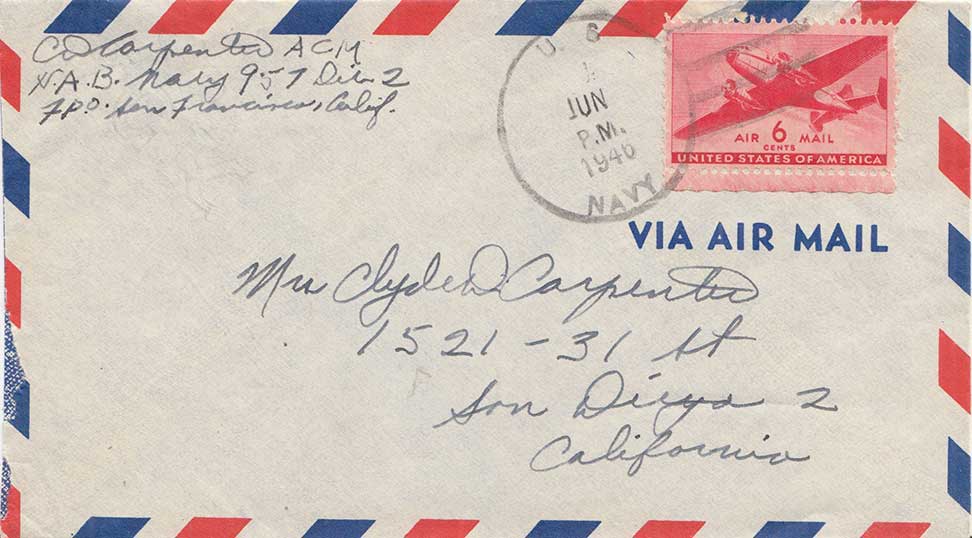 C D Carpenter A C M
N.A.B. Navy 957 Div 2
F P O. San Francisco, Calif.
U. S.
1
JUN
P.M.
1946
NAVY
AIR 6 MAIL
CENTS
UNITED STATES OF AMERICA
VIA AIR MAIL
Mrs Clyde D Carpenter
1521 - 31 St
San Diego 2
California